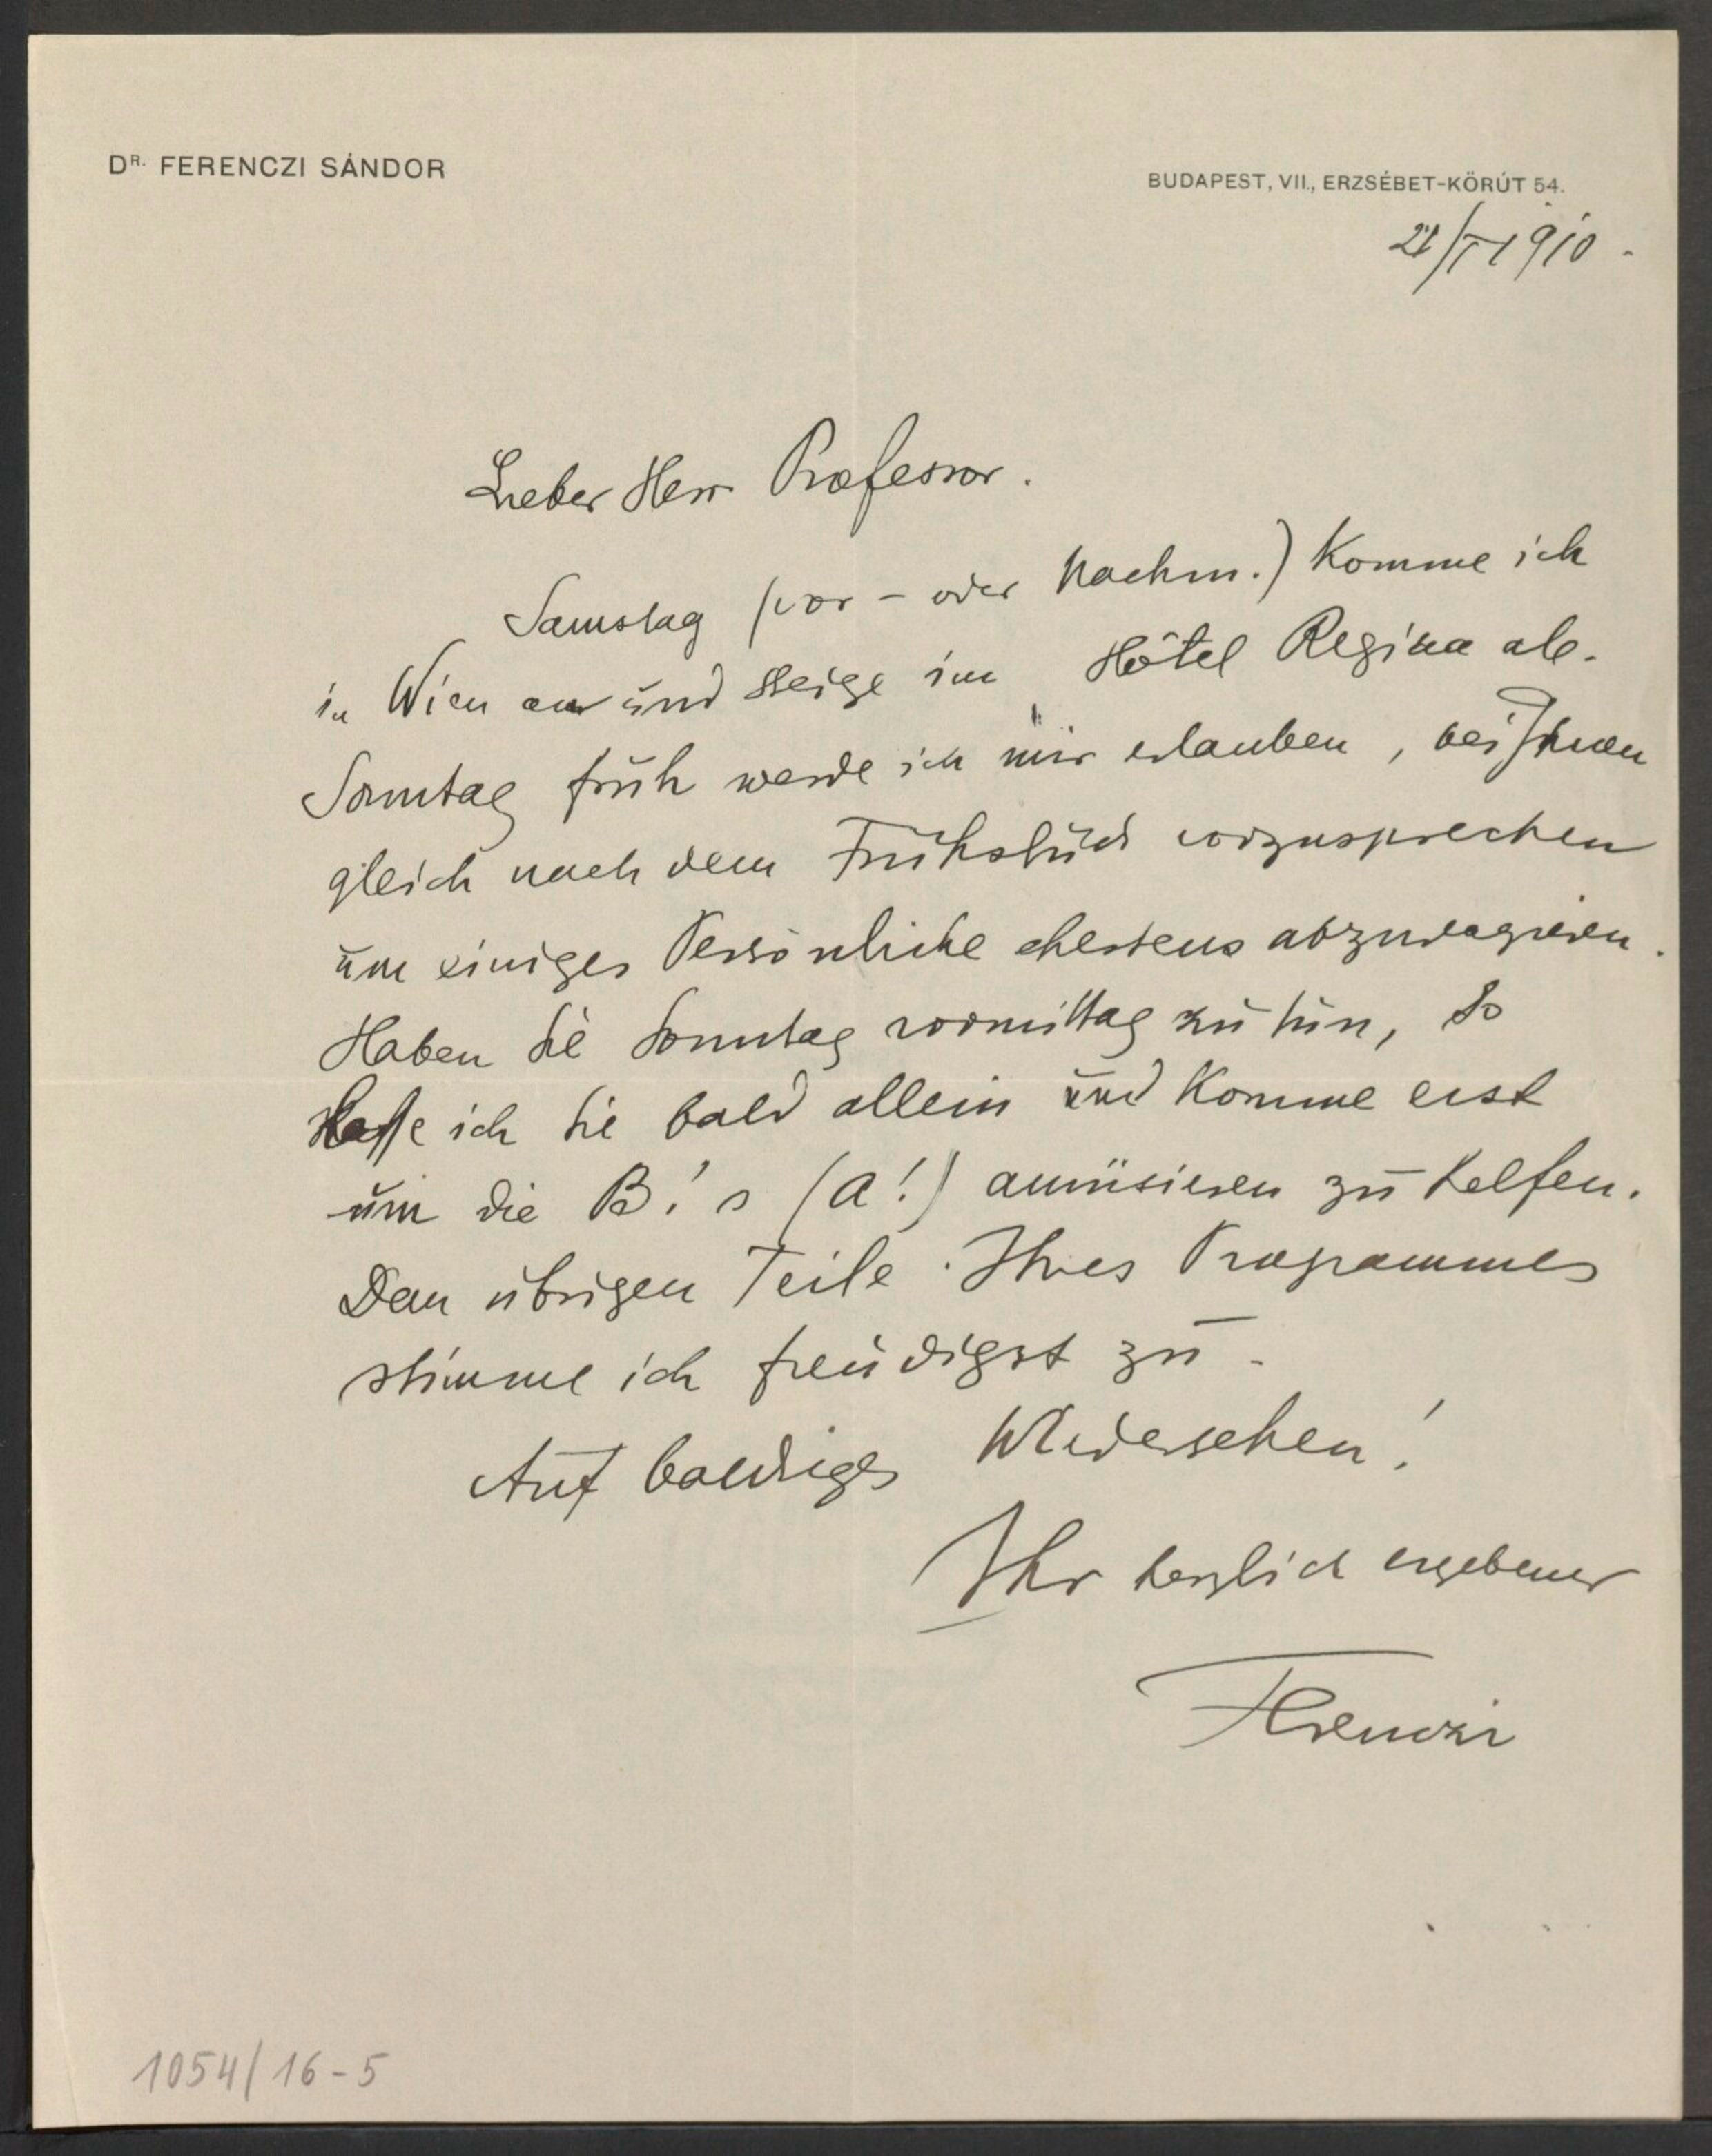 DR. FERENCZI SÁNDOR
BUDAPEST, VII., ERZSÉBET-KÖRÚT 54.
21/I 1910.
Lieber Herr Professor.
Samstag (vor- oder Nachm.) komme ich
in Wien an und steige im Hôtel Regina ab.
Sonntag früh werde ich mir erlauben, bei Ihnen
gleich nach dem Frühstück vorzusprechen
um einiges Persönliche ehestens abzureagieren.
Haben Sie Sonntag vormittag zu tun, so
lasse ich Sie bald allein und komme erst
um die B.'s (A!) amüsieren zu helfen.
Dem übrigen Teile Ihres Programmes
stimme ich freudigst zu.
Auf baldiges Wiedersehen!
Ihr herzlich ergebener
Ferenczi
1054/16-5